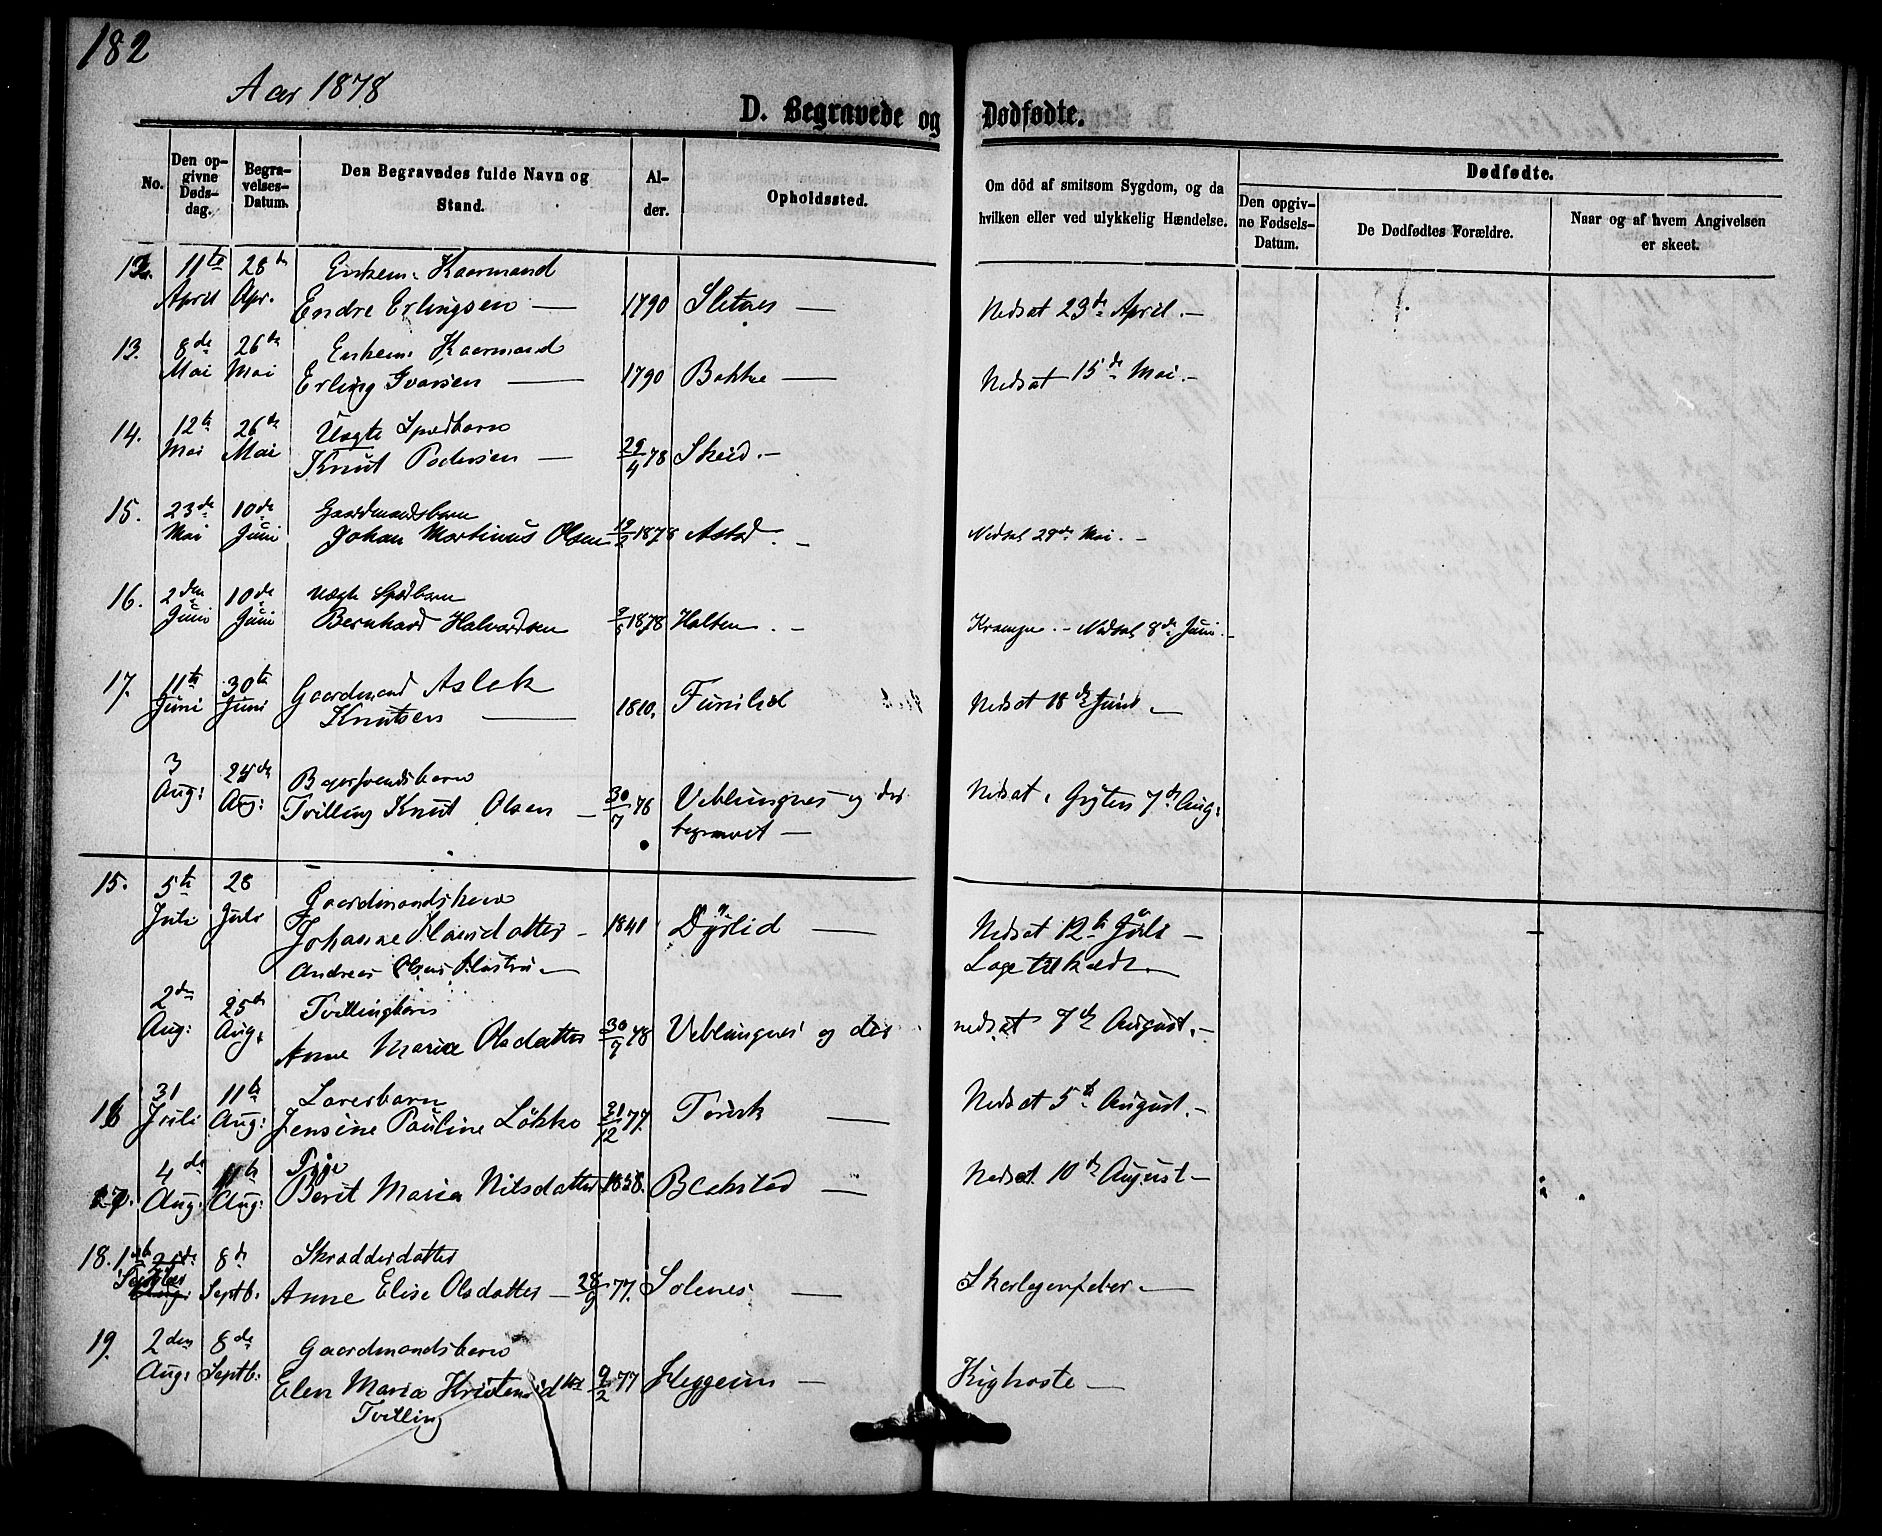 182
Aar 1878
D. Begravede og Dødfødte.
No.
Den op-
givne
Døds-
dag.
Begra-
velses-
Datum.
Den Begravedes fulde Navn og
Stand.
Al-
der.
Opholdssted.
Om död af smitsom Sygdom, og da
hvilken eller ved ulykkelig Hændelse.
Dødfødte.
Den opgiv-
ne Fødsels-
Datum.
De Dødfødtes Forældre.
Naar og af hvem Angivelsen
er skeet.
12. 11te 28de Enkem. Kaarmand
April Apr. Endre Erlingsen — 1790 Sletnes — Nedsat 23de April. —
13. 8de 26de Enkem. Kaarmand
Mai Mai Erling Ivarsen — 1790 Bakke — Nedsat 15de Mai. —
14. 12te 26de Uægte Spædbarn
Mai Mai Knut Pedersen — 29/4 78 Skeid. —
15. 23de 10de Gaardmandsbarn
Mai Juni Johan Martinus Olsen 19/2 1878 Nedsat 29de Mai. —
16. 2den 10de Uægte Spædbarn
Juni Juni Bernhard Halvardsen 1878 Holten. — Krampe. — Nedsat 8de Juni. —
17. 11te 30te Gaardmand Aslak
Juni Juni Knutsen — 1810. Nedsat 18de Juni —
3 25de
Aug: Aug: Tvilling Knut Olsen — 30/7 78 Veblungnes og der
begravet — Nedsat i Gryten 7de Aug:
15. 5te 28 Gaardmandskone
Juli Juli Johanne Hansdatter — 1841 Dyrlid — Nedsat 12te Juli —
Andreas Olsens Hustru —
2den 25de Tvillingbarn
Aug: Aug: Anne Maria Olsdatter 30/7 78 Veblungnes og der nedsat 7de August. —
16 31 11te
Juli Aug: Jensine Pauline Løkke 31/12 77 Torvik — Nedsat 5te August. —
17. 4de 11te Pige
Aug: Aug: Berit Maria Nilsdatter 1858. — Nedsat 10de August —
18. 1ste 8de Skrædderdatter
Septbr Septb: Anne Elise Olsdatter — 28/9 77. Solenes — Skarlagensfeber —
19. 2den 8de Gaardmandsbarn
Aug: Septb: Elen Maria 9/2 77 Heggeim — Kighoste —
Tvilling